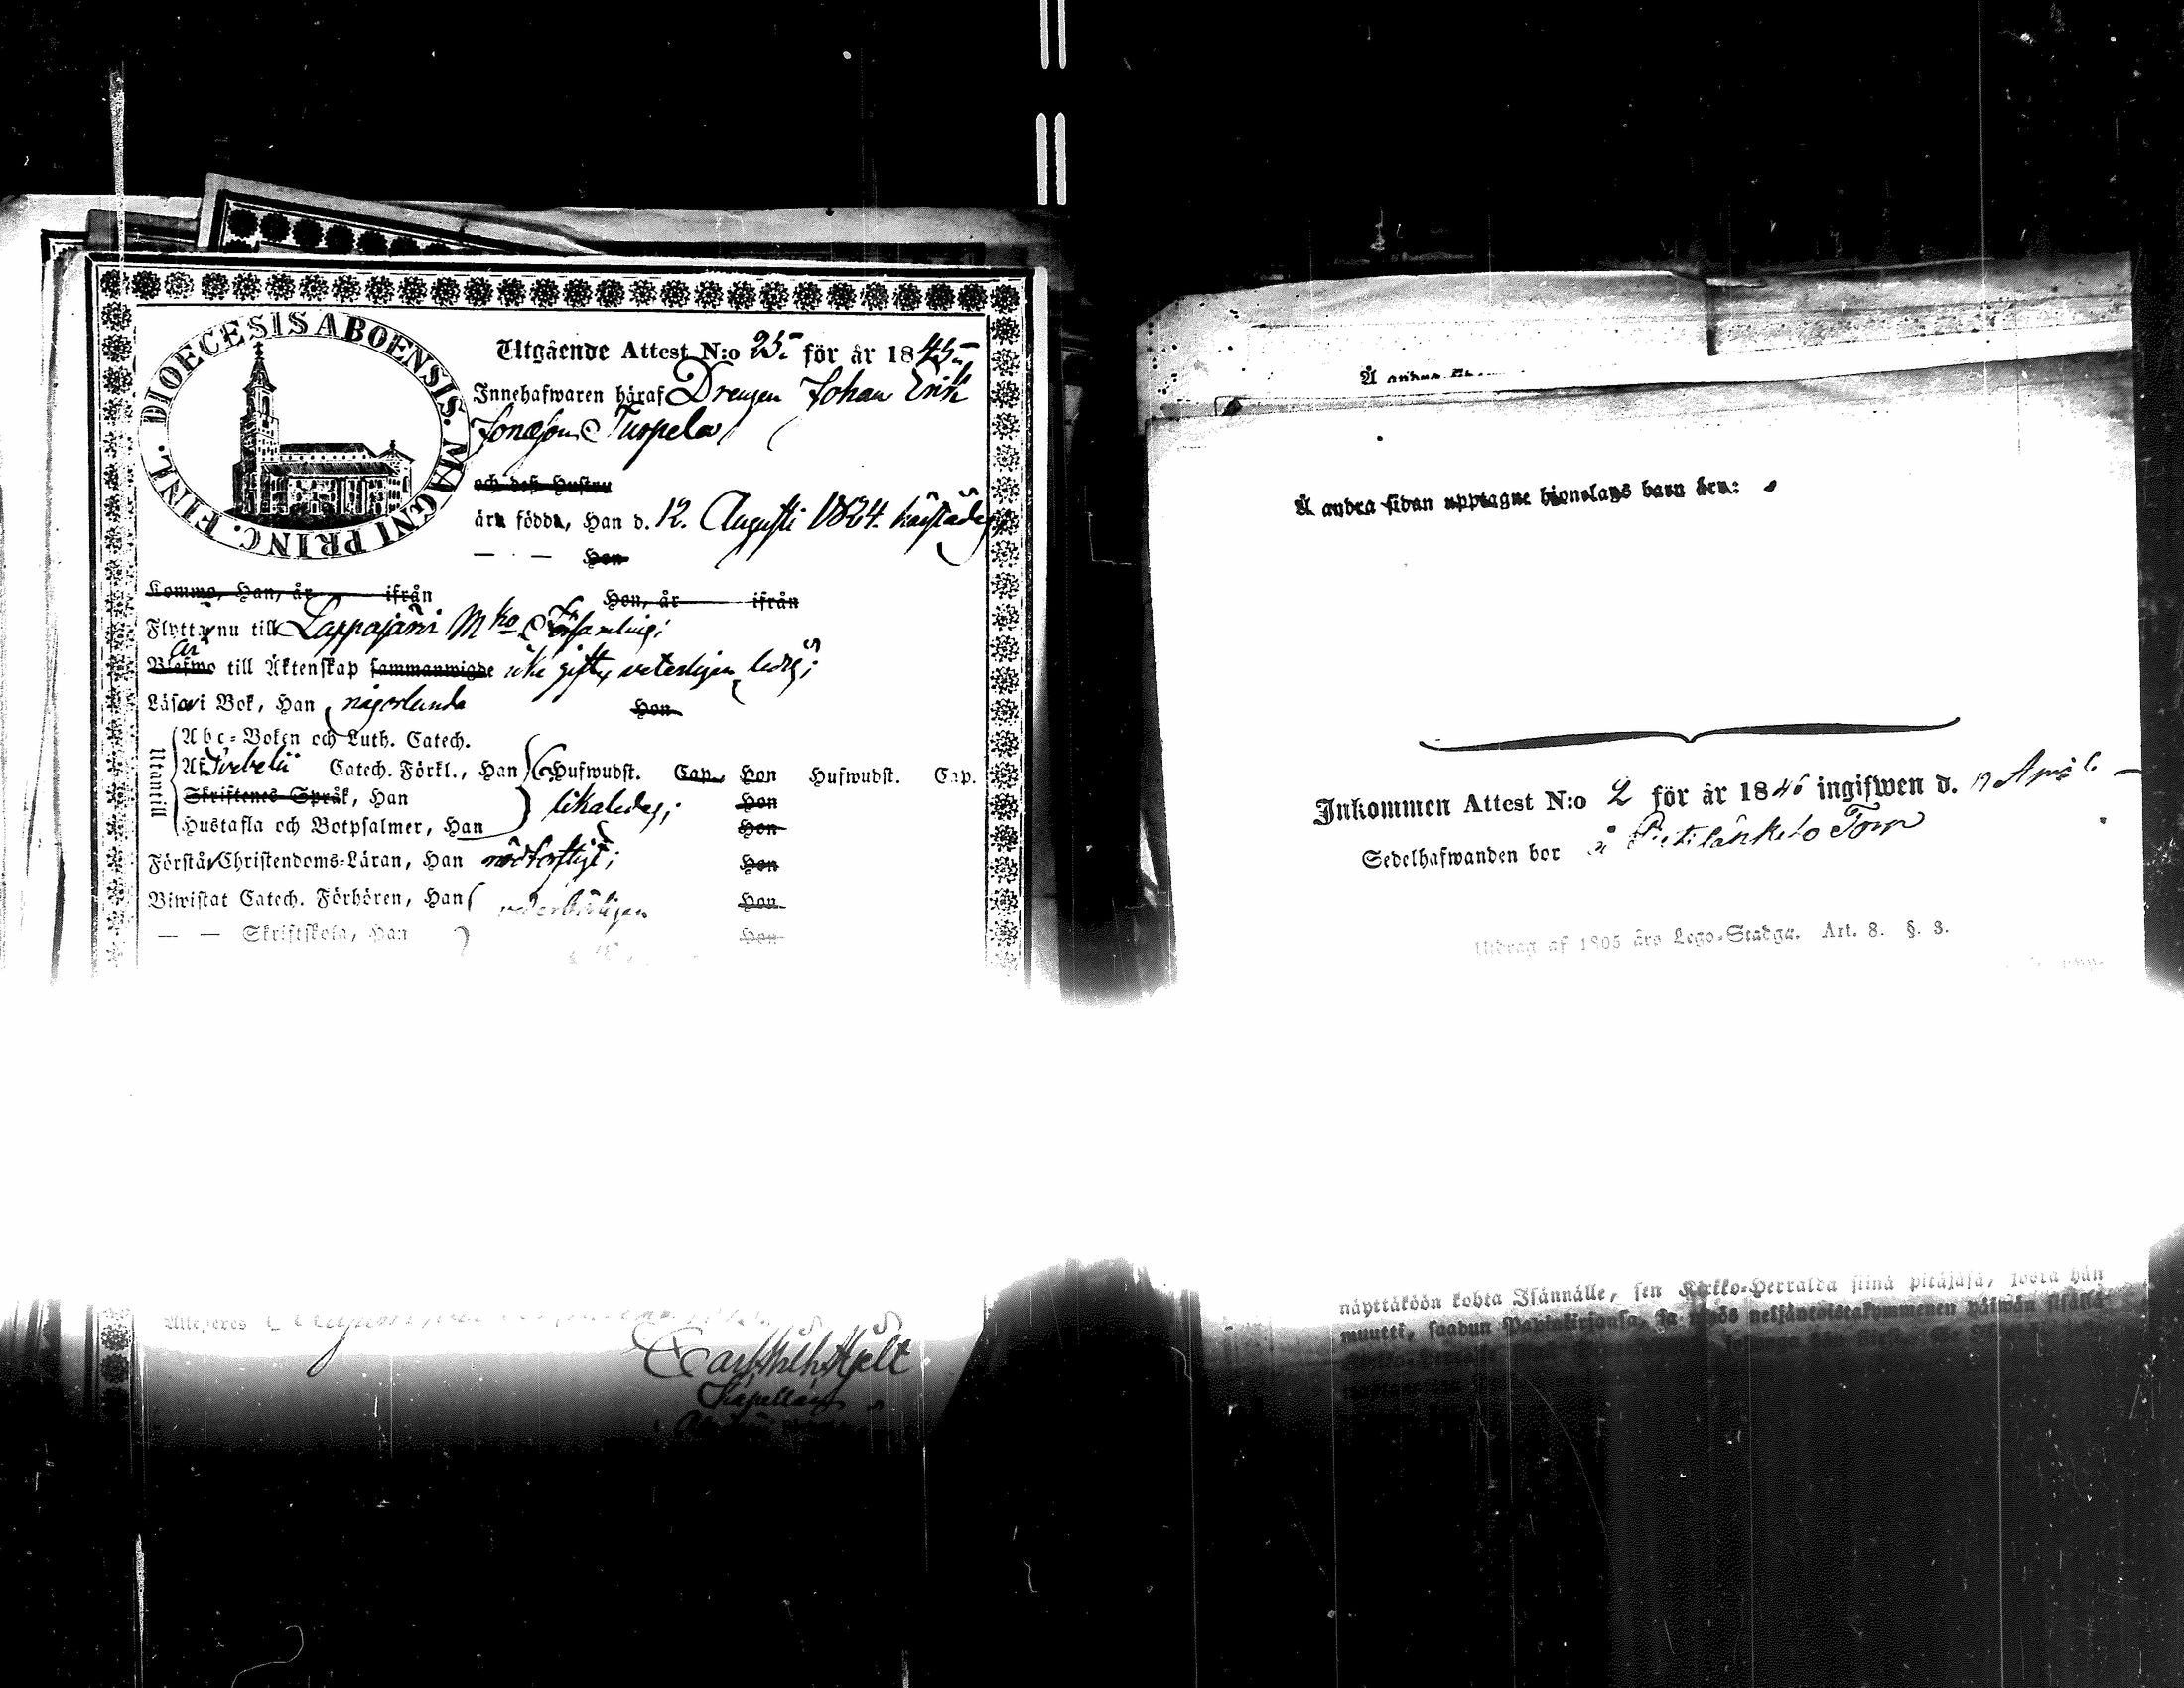 DIOECESIS ABOENSIS. MAGNI PRINC. FINL.
Utgående Attest N:o 25. för år 1845.
Innehafwaren häraf Drengen Johan Erik
Jonæson Turpela
och deß Hustru
äro födde, Han d. 12. Augusti 1824. härstädes
— — Hon
Kommo, Han, år ifrån Hon, år ifrån
Flytta nu till Lappajärvi Mko Församling;
är
Blefwo till Äktenskap sammanwigde icke gift, veterligen ledig;
Läsa i Bok, Han någorlunda Hon
Utantill
Abc-Boken och Luth. Catech.
Af Svebelii Catech. Förkl., Han Hufwudst. Cap. Hon Hufwudst. Cap.
Skriftenes Språk, Han likaledes; Hon
Hustafla och Botpsalmer, Han Hon
Förstår Christendoms-Läran, Han nödtorftigt; Hon
Biwistat Catech. Förhören, Han vederbörligen Hon
— — Skriftskola, Han Hon
Attesteras
Carl Wilh Hjelt
Kapellan
Å andra
Å andra sidan upptagne hionelags barn äro:
Inkommen Attest N:o 2 för år 1846 ingifwen d. 19 April
Sedelhafwanden bor å Torp
Utdrag af 1805 års Lego-Stadga. Art. 8. §. 3.
näyttäköön kohta Isännälle, sen Kirkko-Herralda siinä pitäjäsä, josta hän
muutti, saadun Papinkirjansa, ja myös neljäntoistakymmenen päiwän sisällä